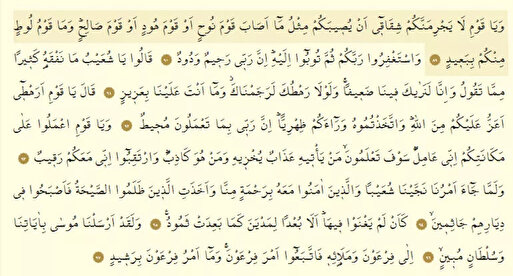 وَيَا قَوْمِ لَا يَجْرِمَنَّكُمْ شِقَاقٖٓي اَنْ يُصٖيبَكُمْ مِثْلُ مَٓا اَصَابَ قَوْمَ نُوحٍ اَوْ قَوْمَ هُودٍ اَوْ قَوْمَ صَالِحٍۜ وَمَا قَوْمُ لُوطٍ
مِنْكُمْ بِبَعٖيدٍ ٨٩ وَاسْتَغْفِرُوا رَبَّكُمْ ثُمَّ تُوبُٓوا اِلَيْهِۜ اِنَّ رَبّٖي رَحٖيمٌ وَدُودٌ ٩٠ قَالُوا يَا شُعَيْبُ مَا نَفْقَهُ كَثٖيرًا
مِمَّا تَقُولُ وَاِنَّا لَنَرٰيكَ فٖينَا ضَعٖيفًاۚ وَلَوْلَا رَهْطُكَ لَرَجَمْنَاكَۘ وَمَٓا اَنْتَ عَلَيْنَا بِعَزٖيزٍ ٩١ قَالَ يَا قَوْمِ اَرَهْطٖٓي
اَعَزُّ عَلَيْكُمْ مِنَ اللّٰهِۜ وَاتَّخَذْتُمُوهُ وَرَٓاءَكُمْ ظِهْرِيًّاۜ اِنَّ رَبّٖي بِمَا تَعْمَلُونَ مُحٖيطٌ ٩٢ وَيَا قَوْمِ اعْمَلُوا عَلٰى
مَكَانَتِكُمْ اِنّٖي عَامِلٌۜ سَوْفَ تَعْلَمُونَۙ مَنْ يَأْتٖيهِ عَذَابٌ يُخْزٖيهِ وَمَنْ هُوَ كَاذِبٌۜ وَارْتَقِبُٓوا اِنّٖي مَعَكُمْ رَقٖيبٌ ٩٣
وَلَمَّا جَٓاءَ اَمْرُنَا نَجَّيْنَا شُعَيْبًا وَالَّذٖينَ اٰمَنُوا مَعَهُ بِرَحْمَةٍ مِنَّا وَاَخَذَتِ الَّذٖينَ ظَلَمُوا الصَّيْحَةُ فَاَصْبَحُوا فٖي
دِيَارِهِمْ جَاثِمٖينَۙ ٩٤ كَاَنْ لَمْ يَغْنَوْا فٖيهَاۜ اَلَا بُعْدًا لِمَدْيَنَ كَمَا بَعِدَتْ ثَمُودُ ٩٥ وَلَقَدْ اَرْسَلْنَا مُوسٰى بِاٰيَاتِنَا
وَسُلْطَانٍ مُبٖينٍۙ ٩٦ اِلٰى فِرْعَوْنَ وَمَلَا۬ئِهٖ فَاتَّبَعُٓوا اَمْرَ فِرْعَوْنَۚ وَمَٓا اَمْرُ فِرْعَوْنَ بِرَشٖيدٍ ٩٧